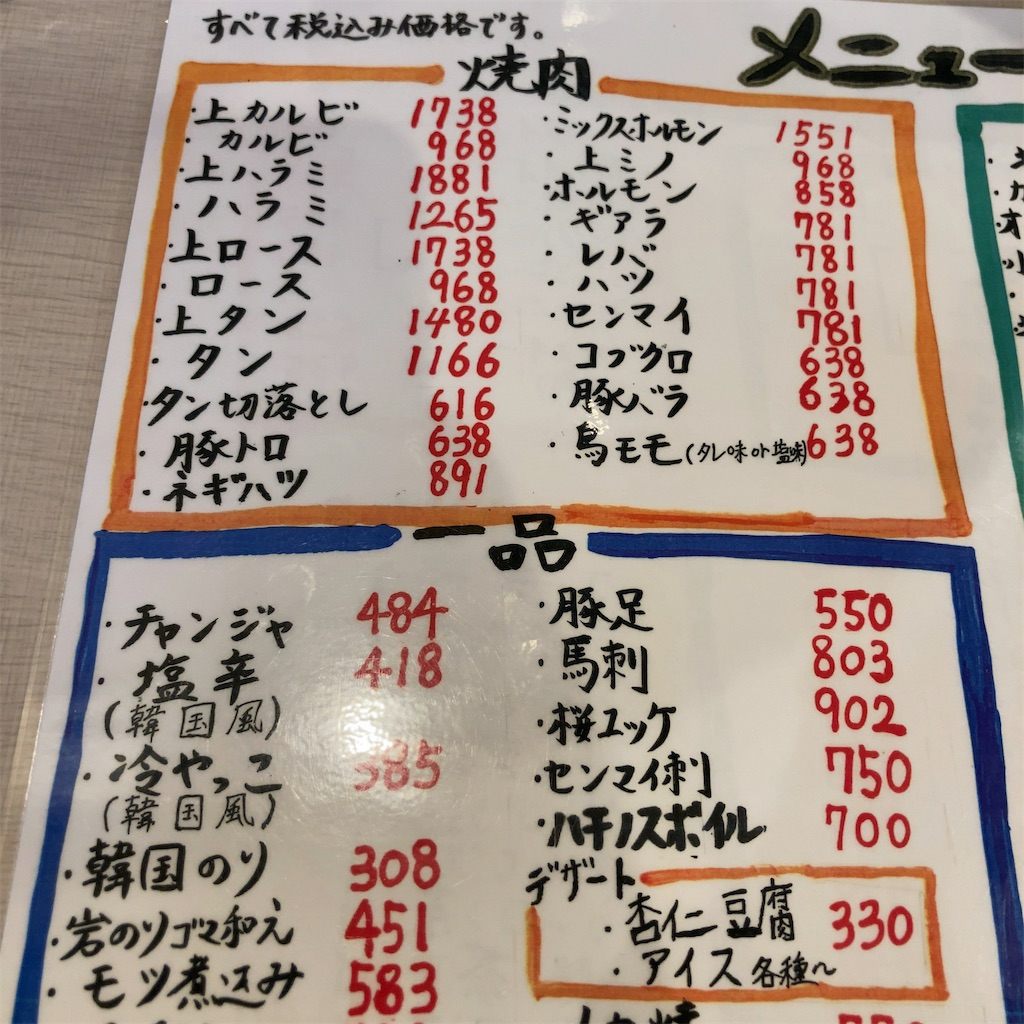 すべて税込み価格です。
メニュー
焼肉
・上カルビ 1738
・カルビ 968
・上ハラミ 1881
・ハラミ 1265
・上ロース 1738
・ロース 968
・上タン 1480
・タン 1166
・タン切落とし 616
・豚トロ 638
・ネギハツ 891
・ミックスホルモン 1551
・上ミノ 968
・ホルモン 858
・ギアラ 781
・レバ 781
・ハツ 781
・センマイ 781
・コブクロ 638
・豚バラ 638
・鳥モモ(タレ味or塩味) 638
一品
・チャンジャ 484
・塩辛 418
(韓国風)
・冷やっこ 385
(韓国風)
・韓国のリ 308
・岩のリゴマ和え 451
・モツ煮込み 583
・豚足 550
・馬刺 803
・桜ユッケ 902
・センマイ刺 750
・ハチノスボイル 700
デザート
・杏仁豆腐 330
・アイス各種~